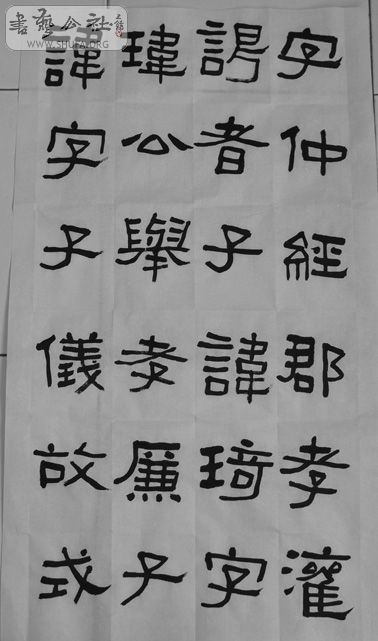 書藝公社
WWW.SHUFA.ORG
字仲經郡孝灌
謁者子諱琦字
瑋公舉孝廉子
諱字子儀故式